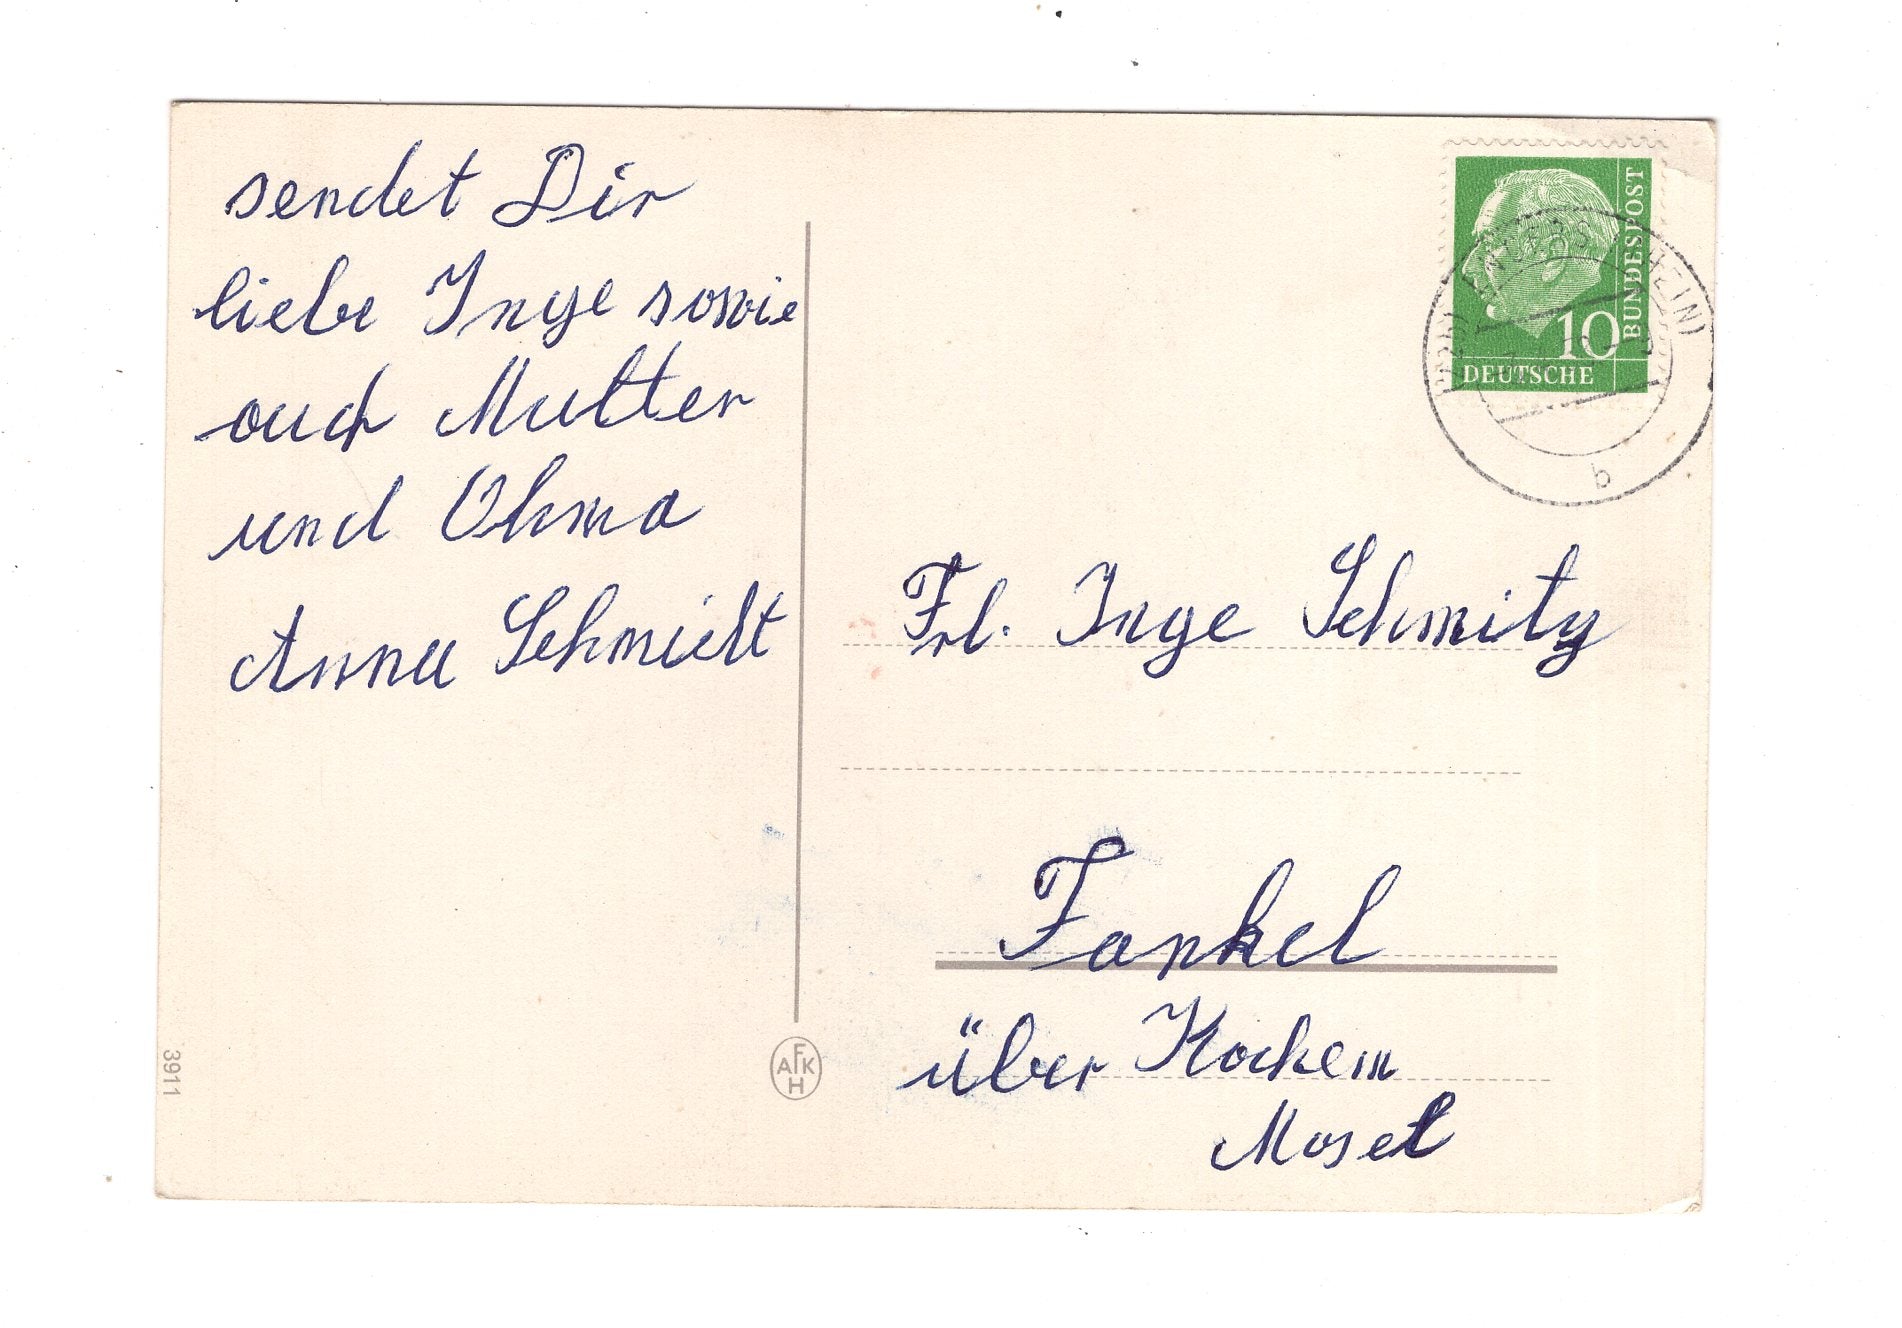 sendet Dir
liebe Inge sowie
auch Mutter
und Ohma
Anna Schmidt
3911
AFKH
DEUTSCHE
BUNDESPOST
10
b
Frl. Inge Schmitz
Fankel
über Kochem
Mosel